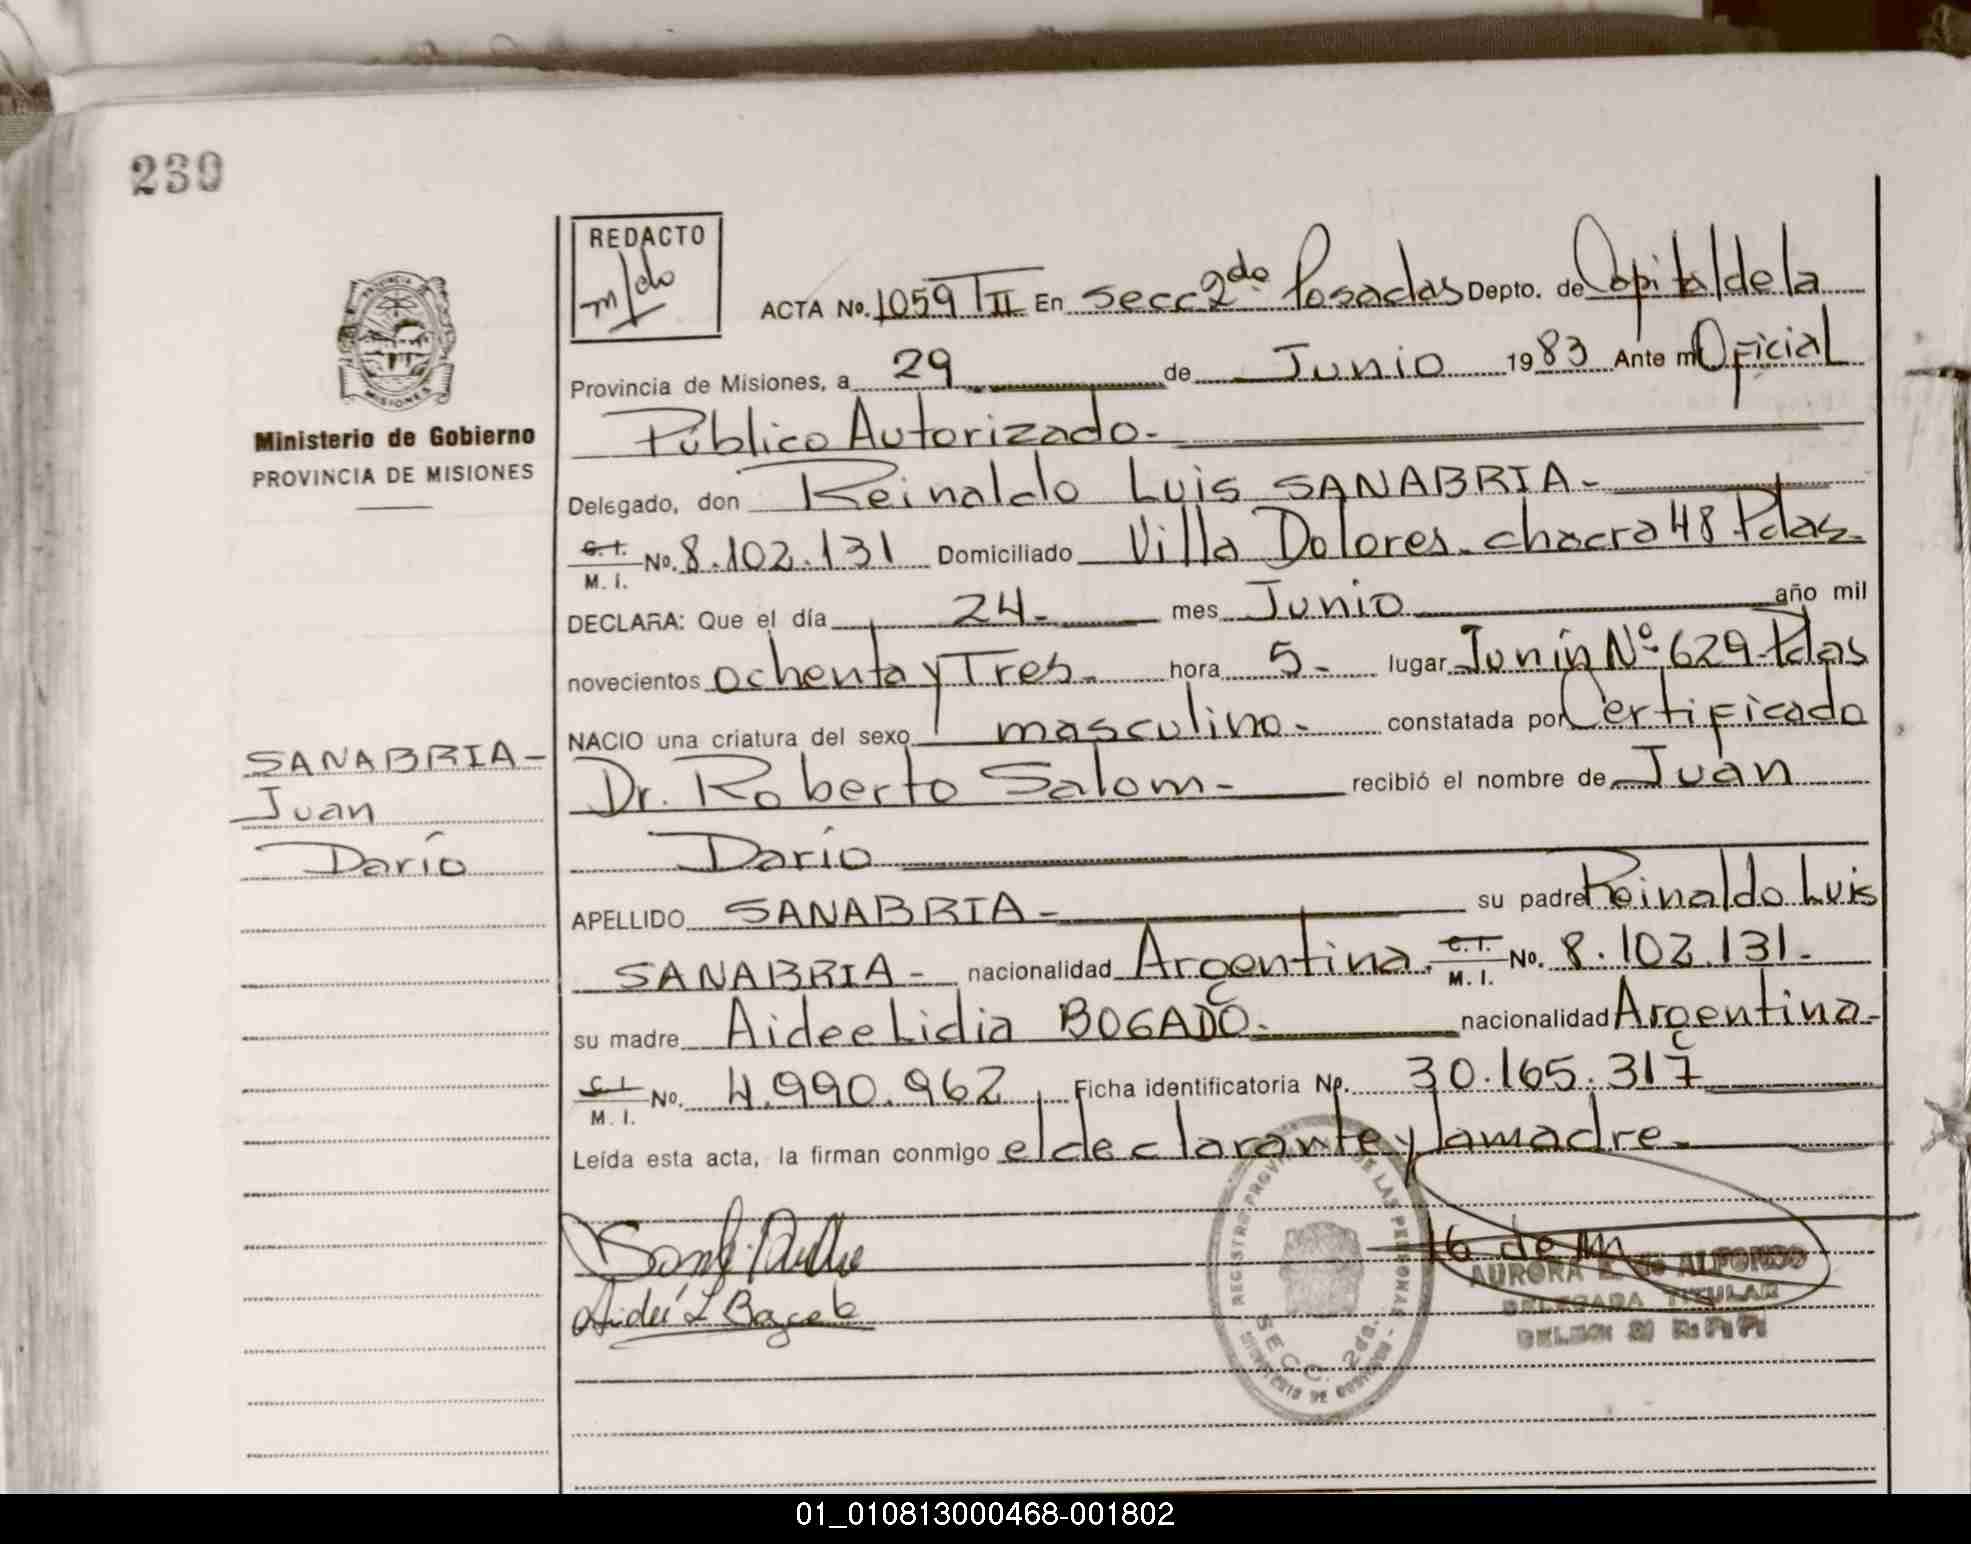 230
REDACTO
ACTA No. 1059 T II En Secc 2da. Posadas Depto. de Capital de la
Provincia de Misiones, a 29 de Junio 1983 Ante mi Oficial
Ministerio de Gobierno
PROVINCIA DE MISIONES
Público Autorizado.-
Delegado, don Reinaldo Luis SANABRIA-
C. I.
M. I. No. 8.102.131 Domiciliado Villa Dolores. chacra 48 Pdas.
DECLARA: Que el día 24- mes Junio año mil
novecientos ochenta y Tres- hora 5- lugar Junín Nº 629-Pdas
NACIO una criatura del sexo masculino- constatada por Certificado
SANABRIA-
Juan
Darío
Dr. Roberto Salom- recibió el nombre de Juan
Darío
APELLIDO SANABRIA- su padre Reinaldo Luis
SANABRIA- nacionalidad Argentina. C. I. M. I. No. 8.102.131-
su madre Aidee Lidia BOGADO- nacionalidad Argentina-
C. I.
M. I. No. 4.990.962 Ficha identificatoria No. 30.165.317
Leída esta acta, la firman conmigo el declarante y la madre-
Aideé L Bogado
16 de m
AURORA E. de ALFONSO
DELEGADA TITULAR
REGISTRO DE LAS PERSONAS - SECC. 2da. MINISTERIO DE GOBIERNO
01_010813000468-001802